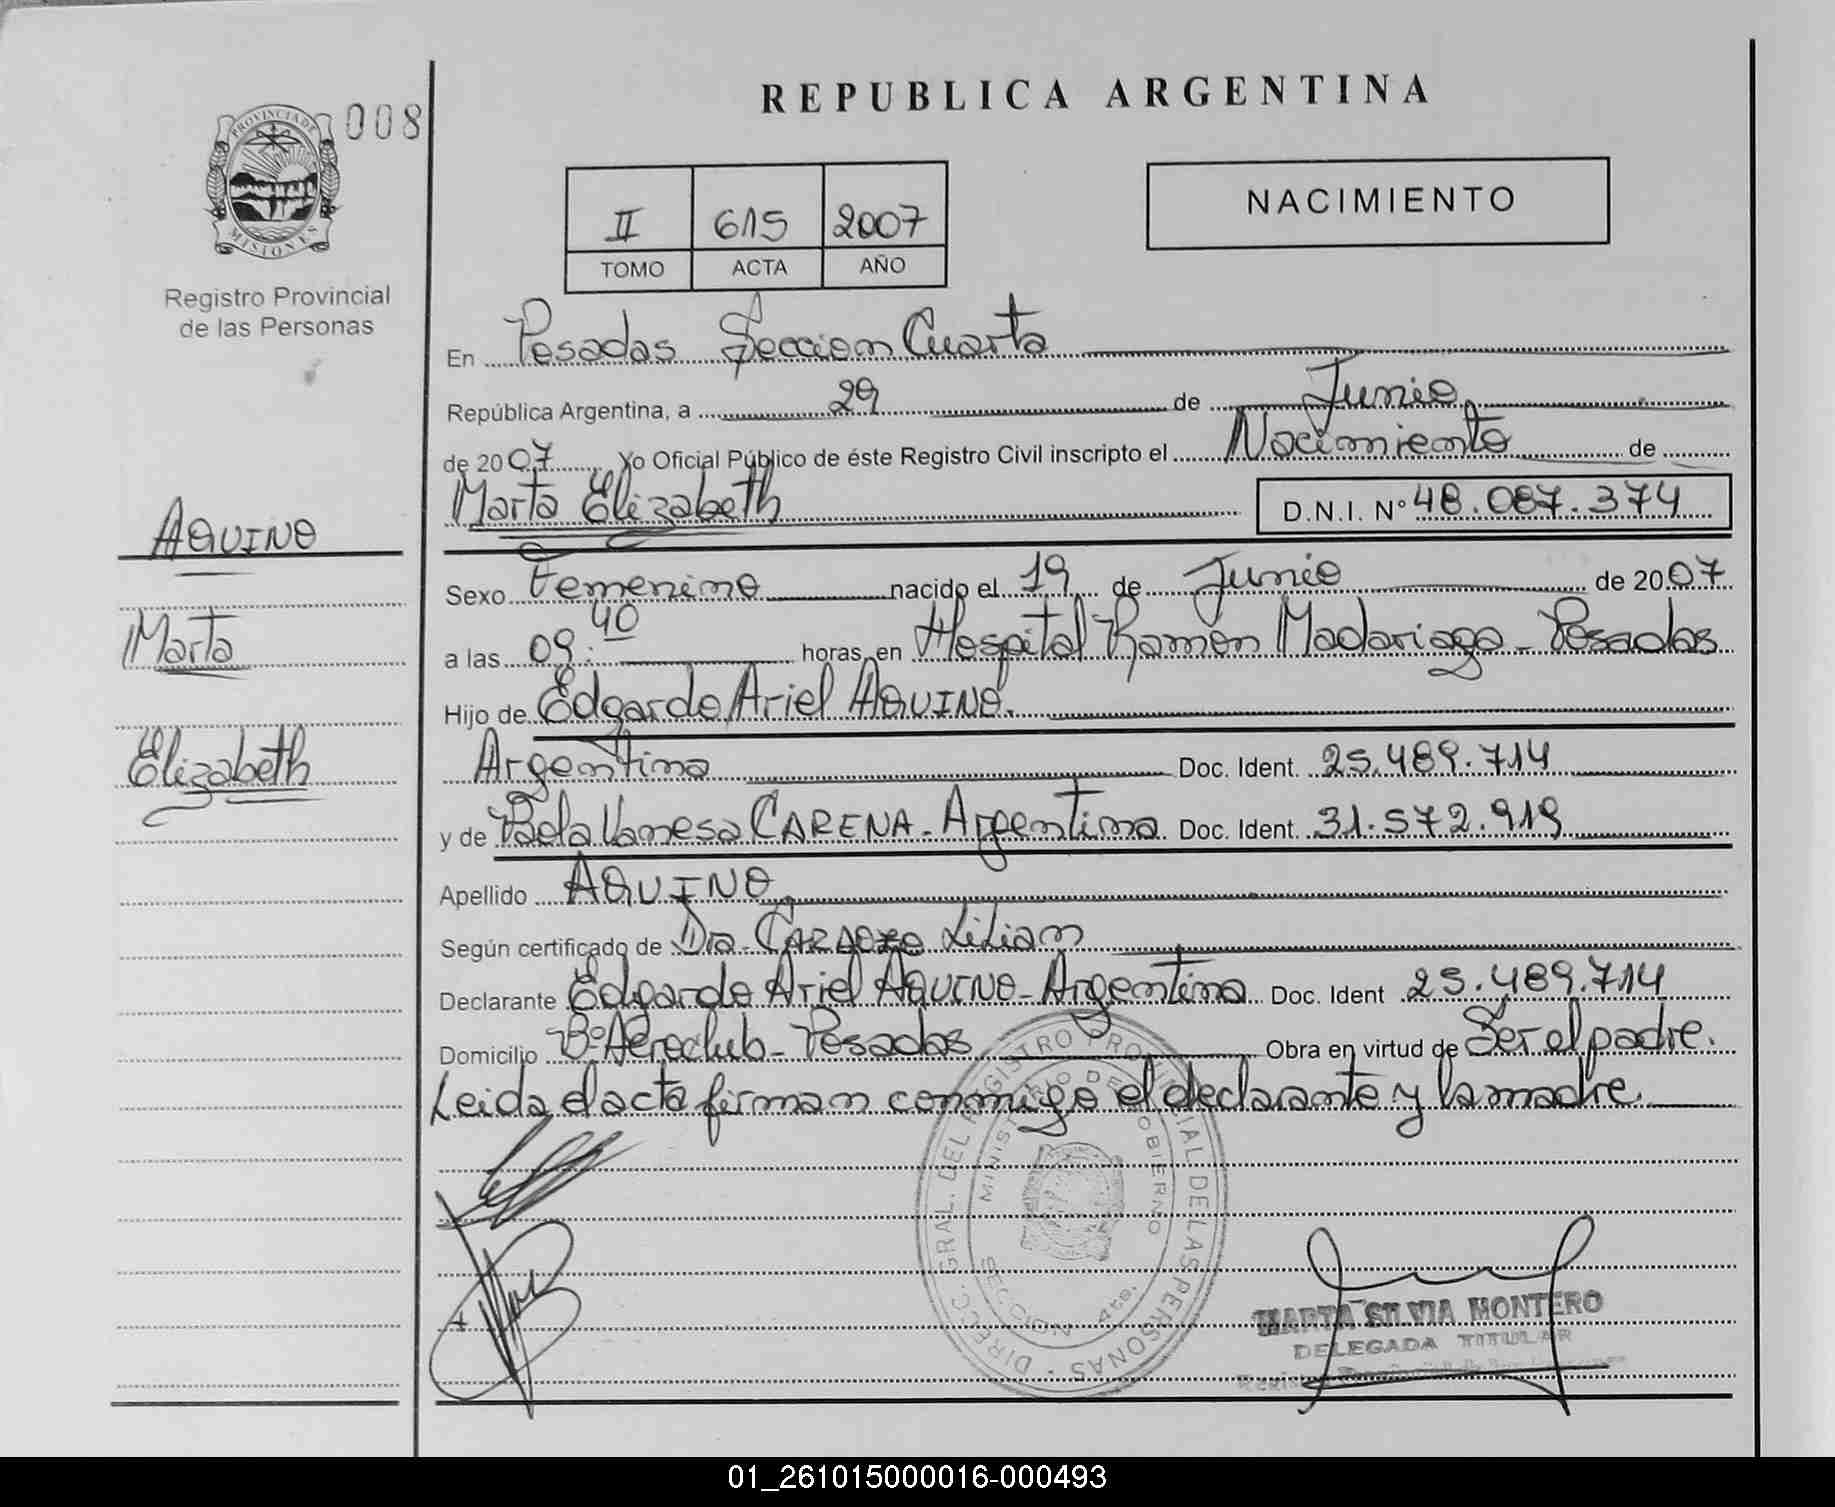 REPUBLICA ARGENTINA
PROVINCIA DE MISIONES
008
Registro Provincial
de las Personas
II 615 2007
TOMO ACTA AÑO
NACIMIENTO
En Posadas Seccion Cuarta
República Argentina, a 29 de Junio
de 2007 Yo Oficial Público de éste Registro Civil inscripto el Nacimiento de
Marta Elizabeth D.N.I. Nº 48.087.374
AQUINO
Marta
Elizabeth
Sexo Femenino nacido el 19 de Junio de 2007
a las 09:40 horas, en Hospital Ramon Madariaga - Posadas
Hijo de Edgardo Ariel AQUINO.
Argentina Doc. Ident. 25.489.714
y de Paola Vanesa CARENA - Argentina Doc. Ident. 31.572.919
Apellido AQUINO
Según certificado de Dra. Lilian
Declarante Edgardo Ariel AQUINO - Argentina Doc. Ident 25.489.714
Domicilio Bº Aeroclub - Posadas Obra en virtud de Ser el padre.
Leida el acta firman conmigo el declarante y la madre.
DIRECC. GRAL. DEL REGISTRO PROVINCIAL DE LAS PERSONAS
MINISTERIO DE GOBIERNO
SECCION 4ta.
MARTA SILVIA MONTERO
DELEGADA TITULAR
01_261015000016-000493